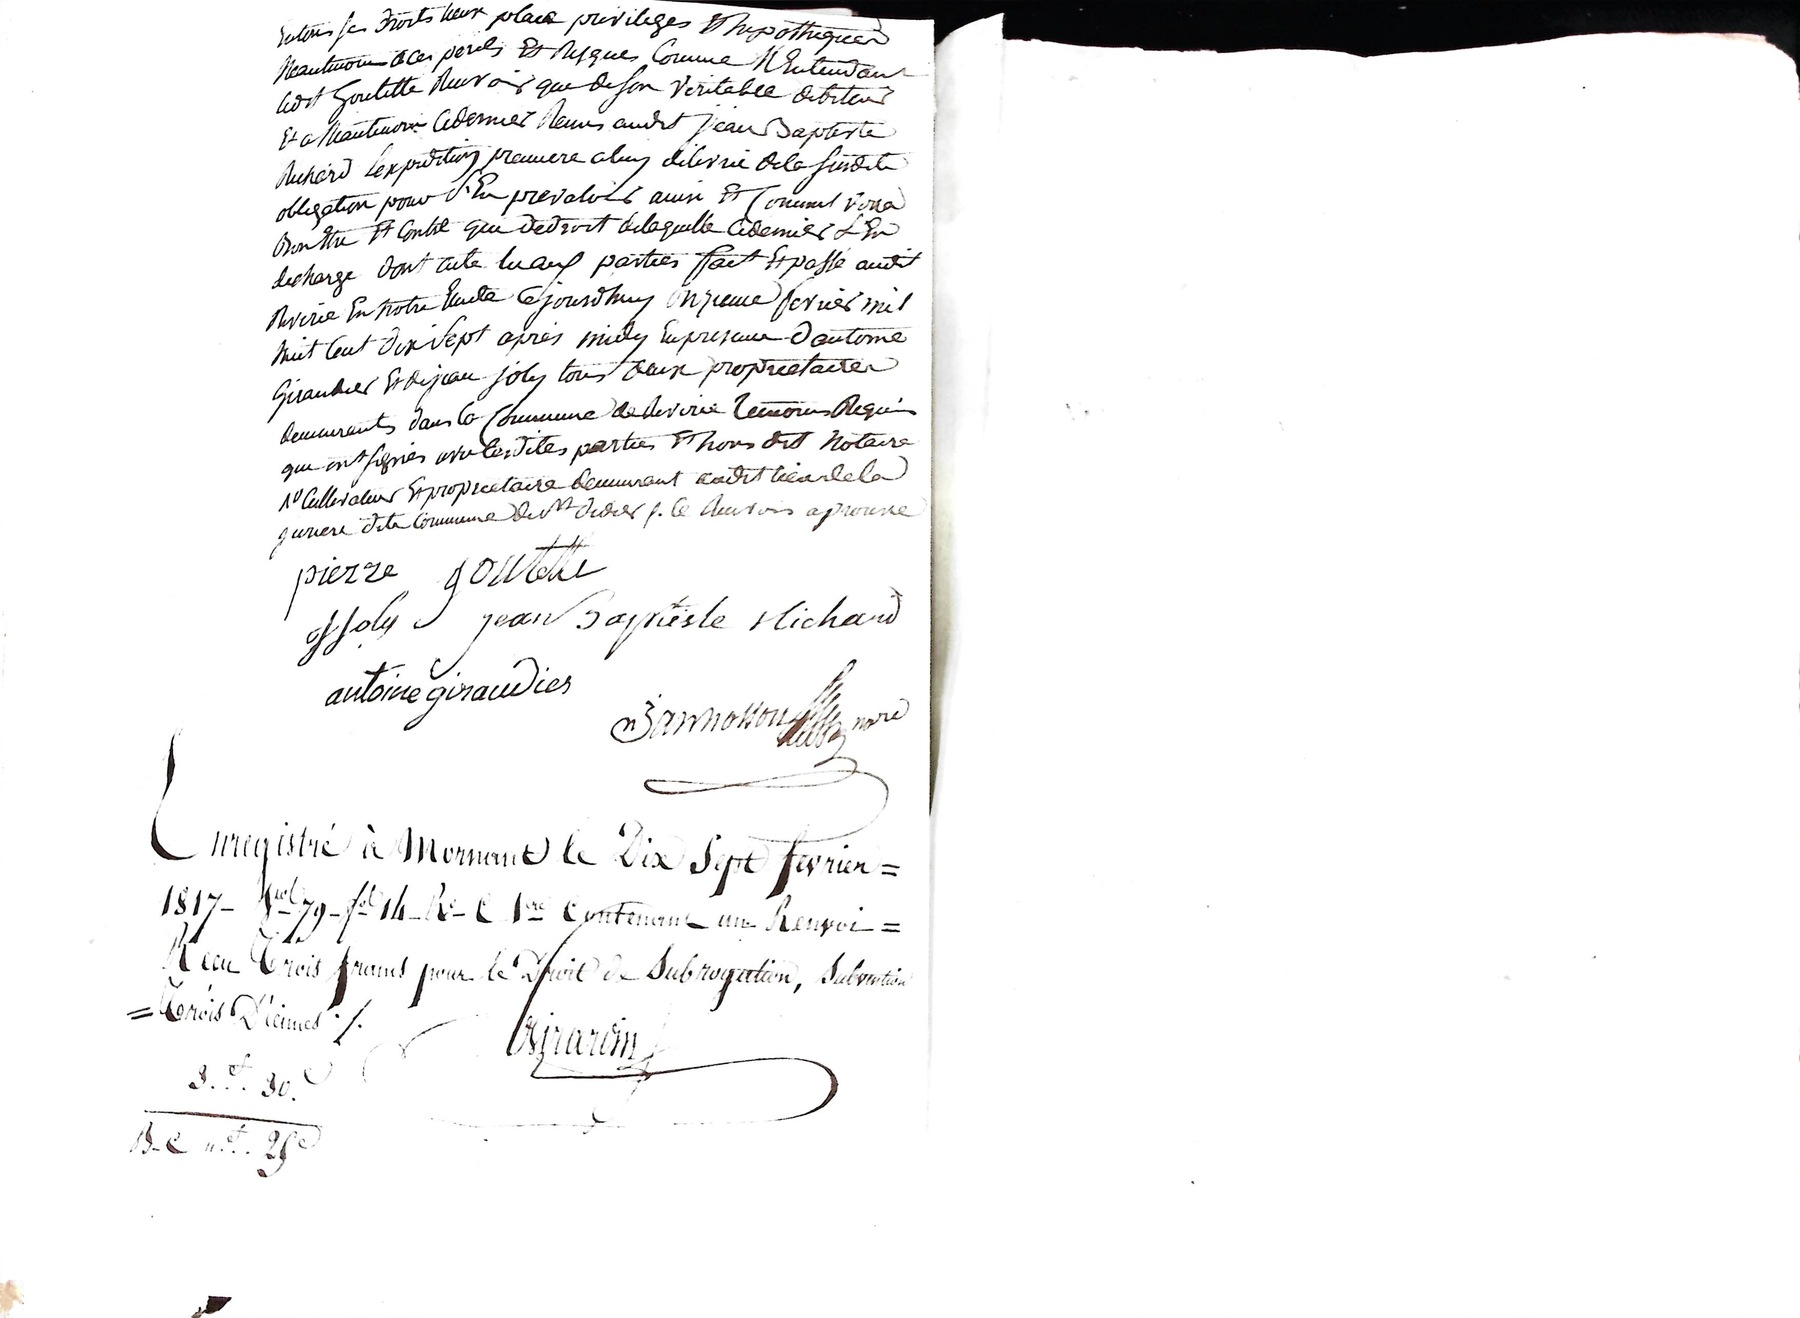 Entous ses droits lieux place privileges Et hypotheques
Neantmoins a ces perils Et Risques Comme N'Entendant
ledit Goutette Recevoir que de son veritable debiteur
Et a Neantmoin Cedernier Remis audit jean Baptiste
Richard L'expedition premiere aluy delivrée dela susdite
obligation pour s'En prevaloir ainsi Et Comme verra
Bon Etre Et Contre que dedroit delaquelle Cedernier L'En
decharge dont acte lu aux parties ffait Et passé audit
Riverie En notre Etude Cejourdhuy onzieme fevrier mil
huit Cent dix sept après midy En presence d'antoine
Giraudier Et de jean joly tous deux proprietaires
demeurants dans la Commune de Riverie Temoins Requis
qui ont signés avec lesdites parties Et nous dit Notaire
Cultivateur Et proprietaire demeurant audit lieu dela
dite Commune de St didier s. le Renvois aprouvé
pierre goutette
Joly jean Baptiste Richard
antoine giraudier
nore
Enregistré à Mornant le Dix Sept fevrier =
1817 - vol 79 - fol 14 - Ro C 1re Contenant un Renvoi =
Recu Trois francs pour le Droit de Subrogation, Subvention
= Trois Décimes ./.
Girardin
3.f. 30.c
B. C 25c